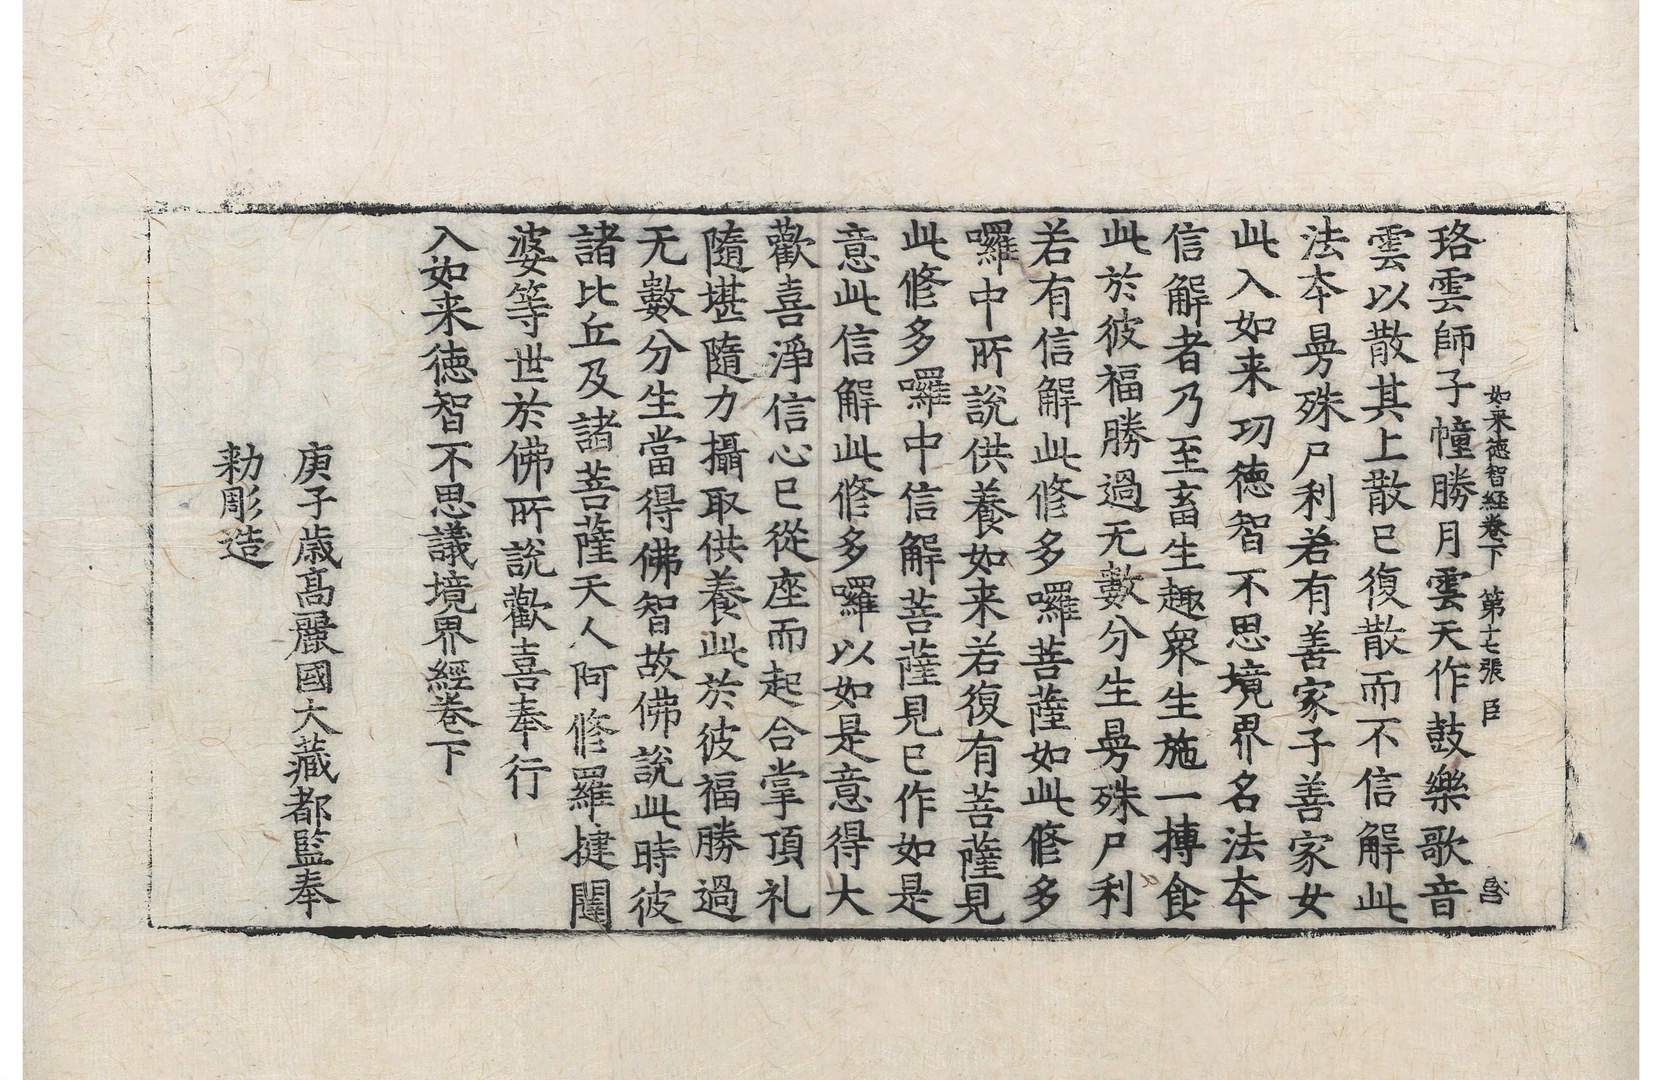 如来徳智經卷下 第十七張 臣
珞雲師子幢勝月雲天作鼓樂歌音
雲以散其上散已復散而不信解此
法夲㬅殊尸利若有善家子善家女
此入如来功德智不思境界名法夲
信解者乃至畜生趣衆生施一摶食
此於彼福勝過无數分生㬅殊尸利
若有信解此修多囉菩薩如此修多
囉中所說供養如来若復有菩薩見
此修多囉中信解菩薩見已作如是
意此信解此修多囉以如是意得大
歡喜淨信心已從座而起合掌頂礼
隨堪隨力攝取供養此於彼福勝過
无數分生當得佛智故佛說此時彼
諸比丘及諸菩薩天人阿修羅揵闥
婆等世於佛所說歡喜奉行
入如来德智不思議境界經卷下
庚子歲高麗國大藏都監奉
勑彫造